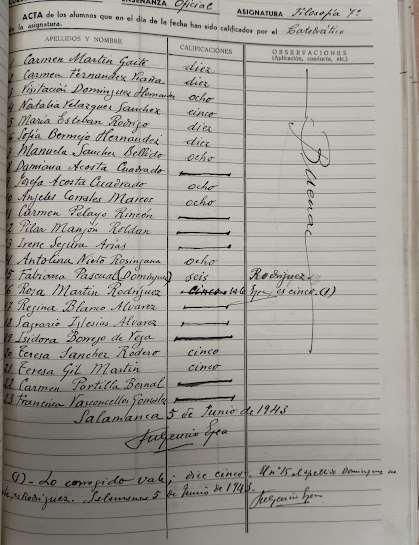 ENSEÑANZA Oficial ASIGNATURA Filosofía 7º
ACTA de los alumnos que en el día de la fecha han sido calificados por el Catedrático
la asignatura.
APELLIDOS Y NOMBRE CALIFICACIONES OBSERVACIONES
(Aplicación, conducta, etc.)
Carmen Martín Gaite diez
Carmen Fernandez diez
Visitación Dominguez Hernandez ocho
4 Natalia Velazquez Sanchez cinco
5 María Esteban Rodrigo diez
Sofía Bermejo Hernandez diez
Manuela Sanchez Bellido ocho
Damiana Acosta Cuadrado
Josefa Acosta Cuadrado ocho
10 Angeles Corrales Marcos ocho
Buenas
1 Carmen Pelayo Rincón
2 Pilar Manjón Roldan
3 Irene Segura Arias
4 Antolina Nieto ocho
5 Fabiana Pascual (Dominguez) seis Rodríguez
6 Rosa Martín Rodríguez cinco es cinco. (1)
17 Regina Blanco Alvarez
18 Sagrario Iglesias Alvarez
19 Isidora de Vega
20 Teresa Sanchez Rodero cinco
21 Teresa Gil Martín cinco
22 Carmen Portilla Bernal
23 Francisca Vasconcellos Gonzalez
Salamanca 5 de Junio de 1943
Fulgencio Egea
(1) - Lo corregido vale; dice cinco. El nº 15 el apellido Dominguez
Rodriguez. Salamanca 5 de Junio de 1943.
Fulgencio Egea